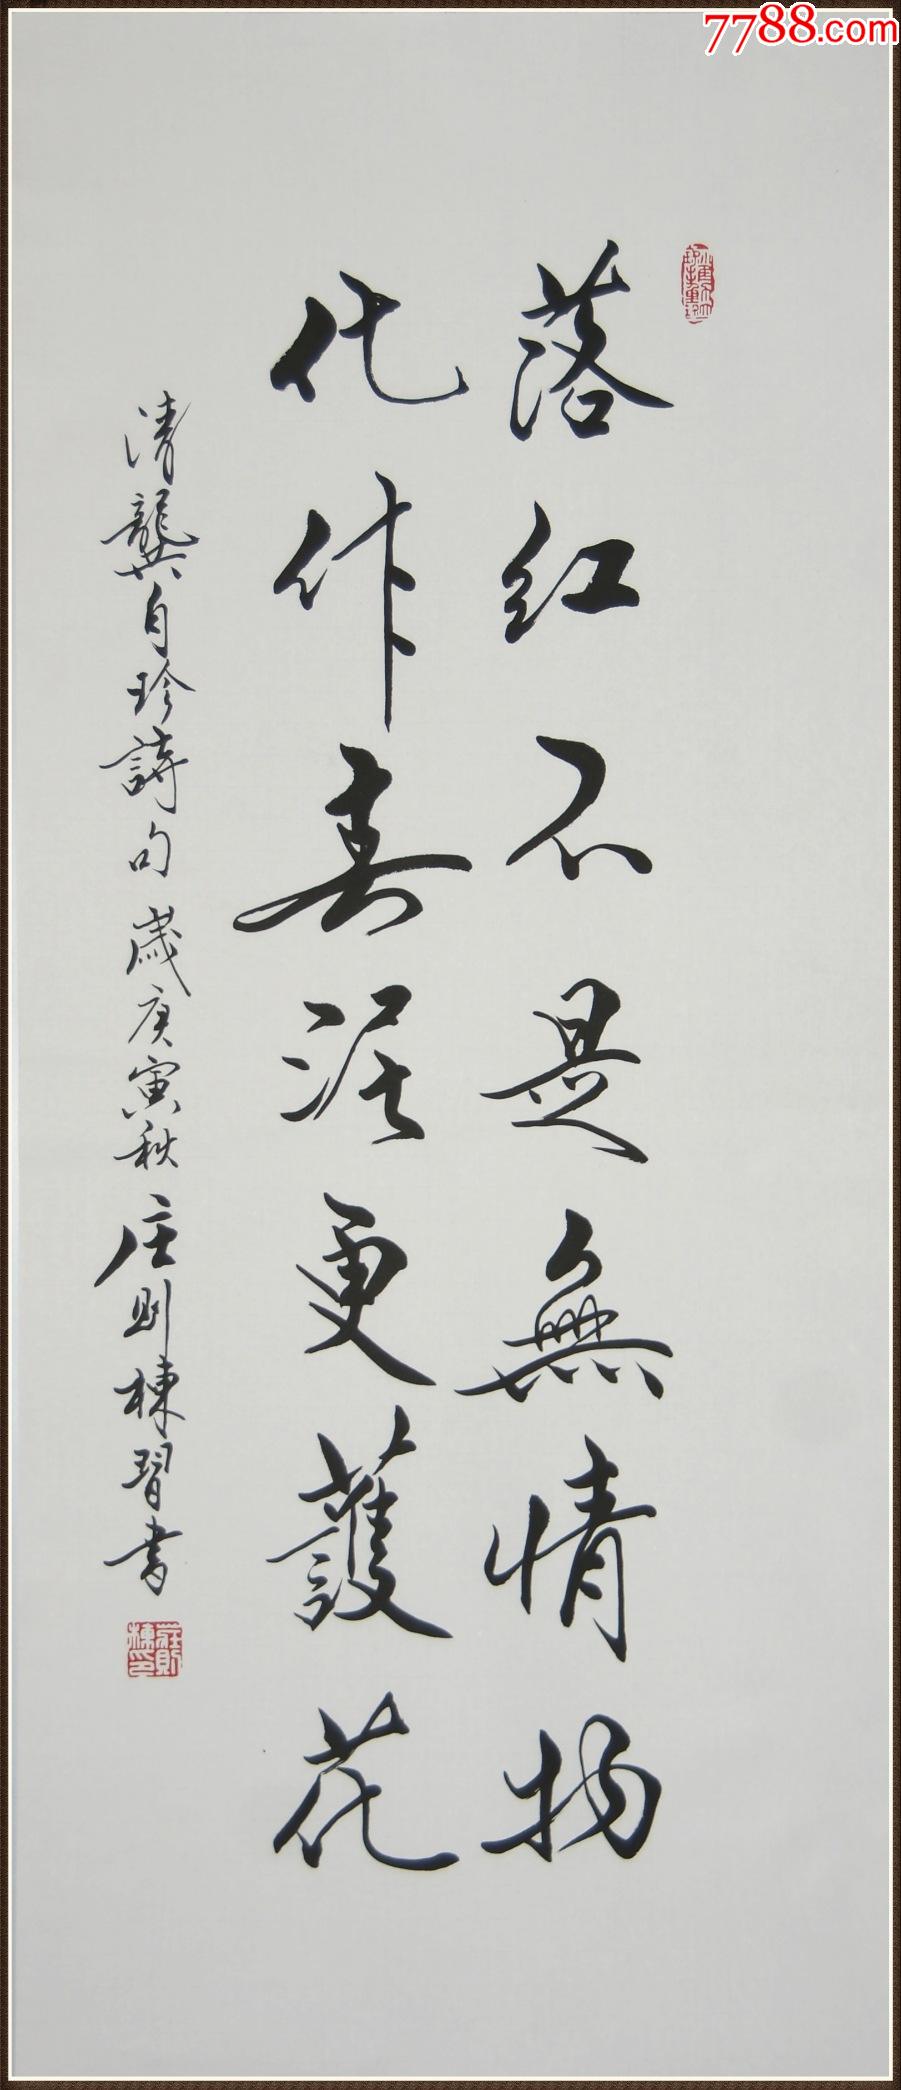 7788.com
落红不是無情物
化作春泥更護花
清龔自珍詩句 歲庚寅秋 庄則棟習书
莊則棟印